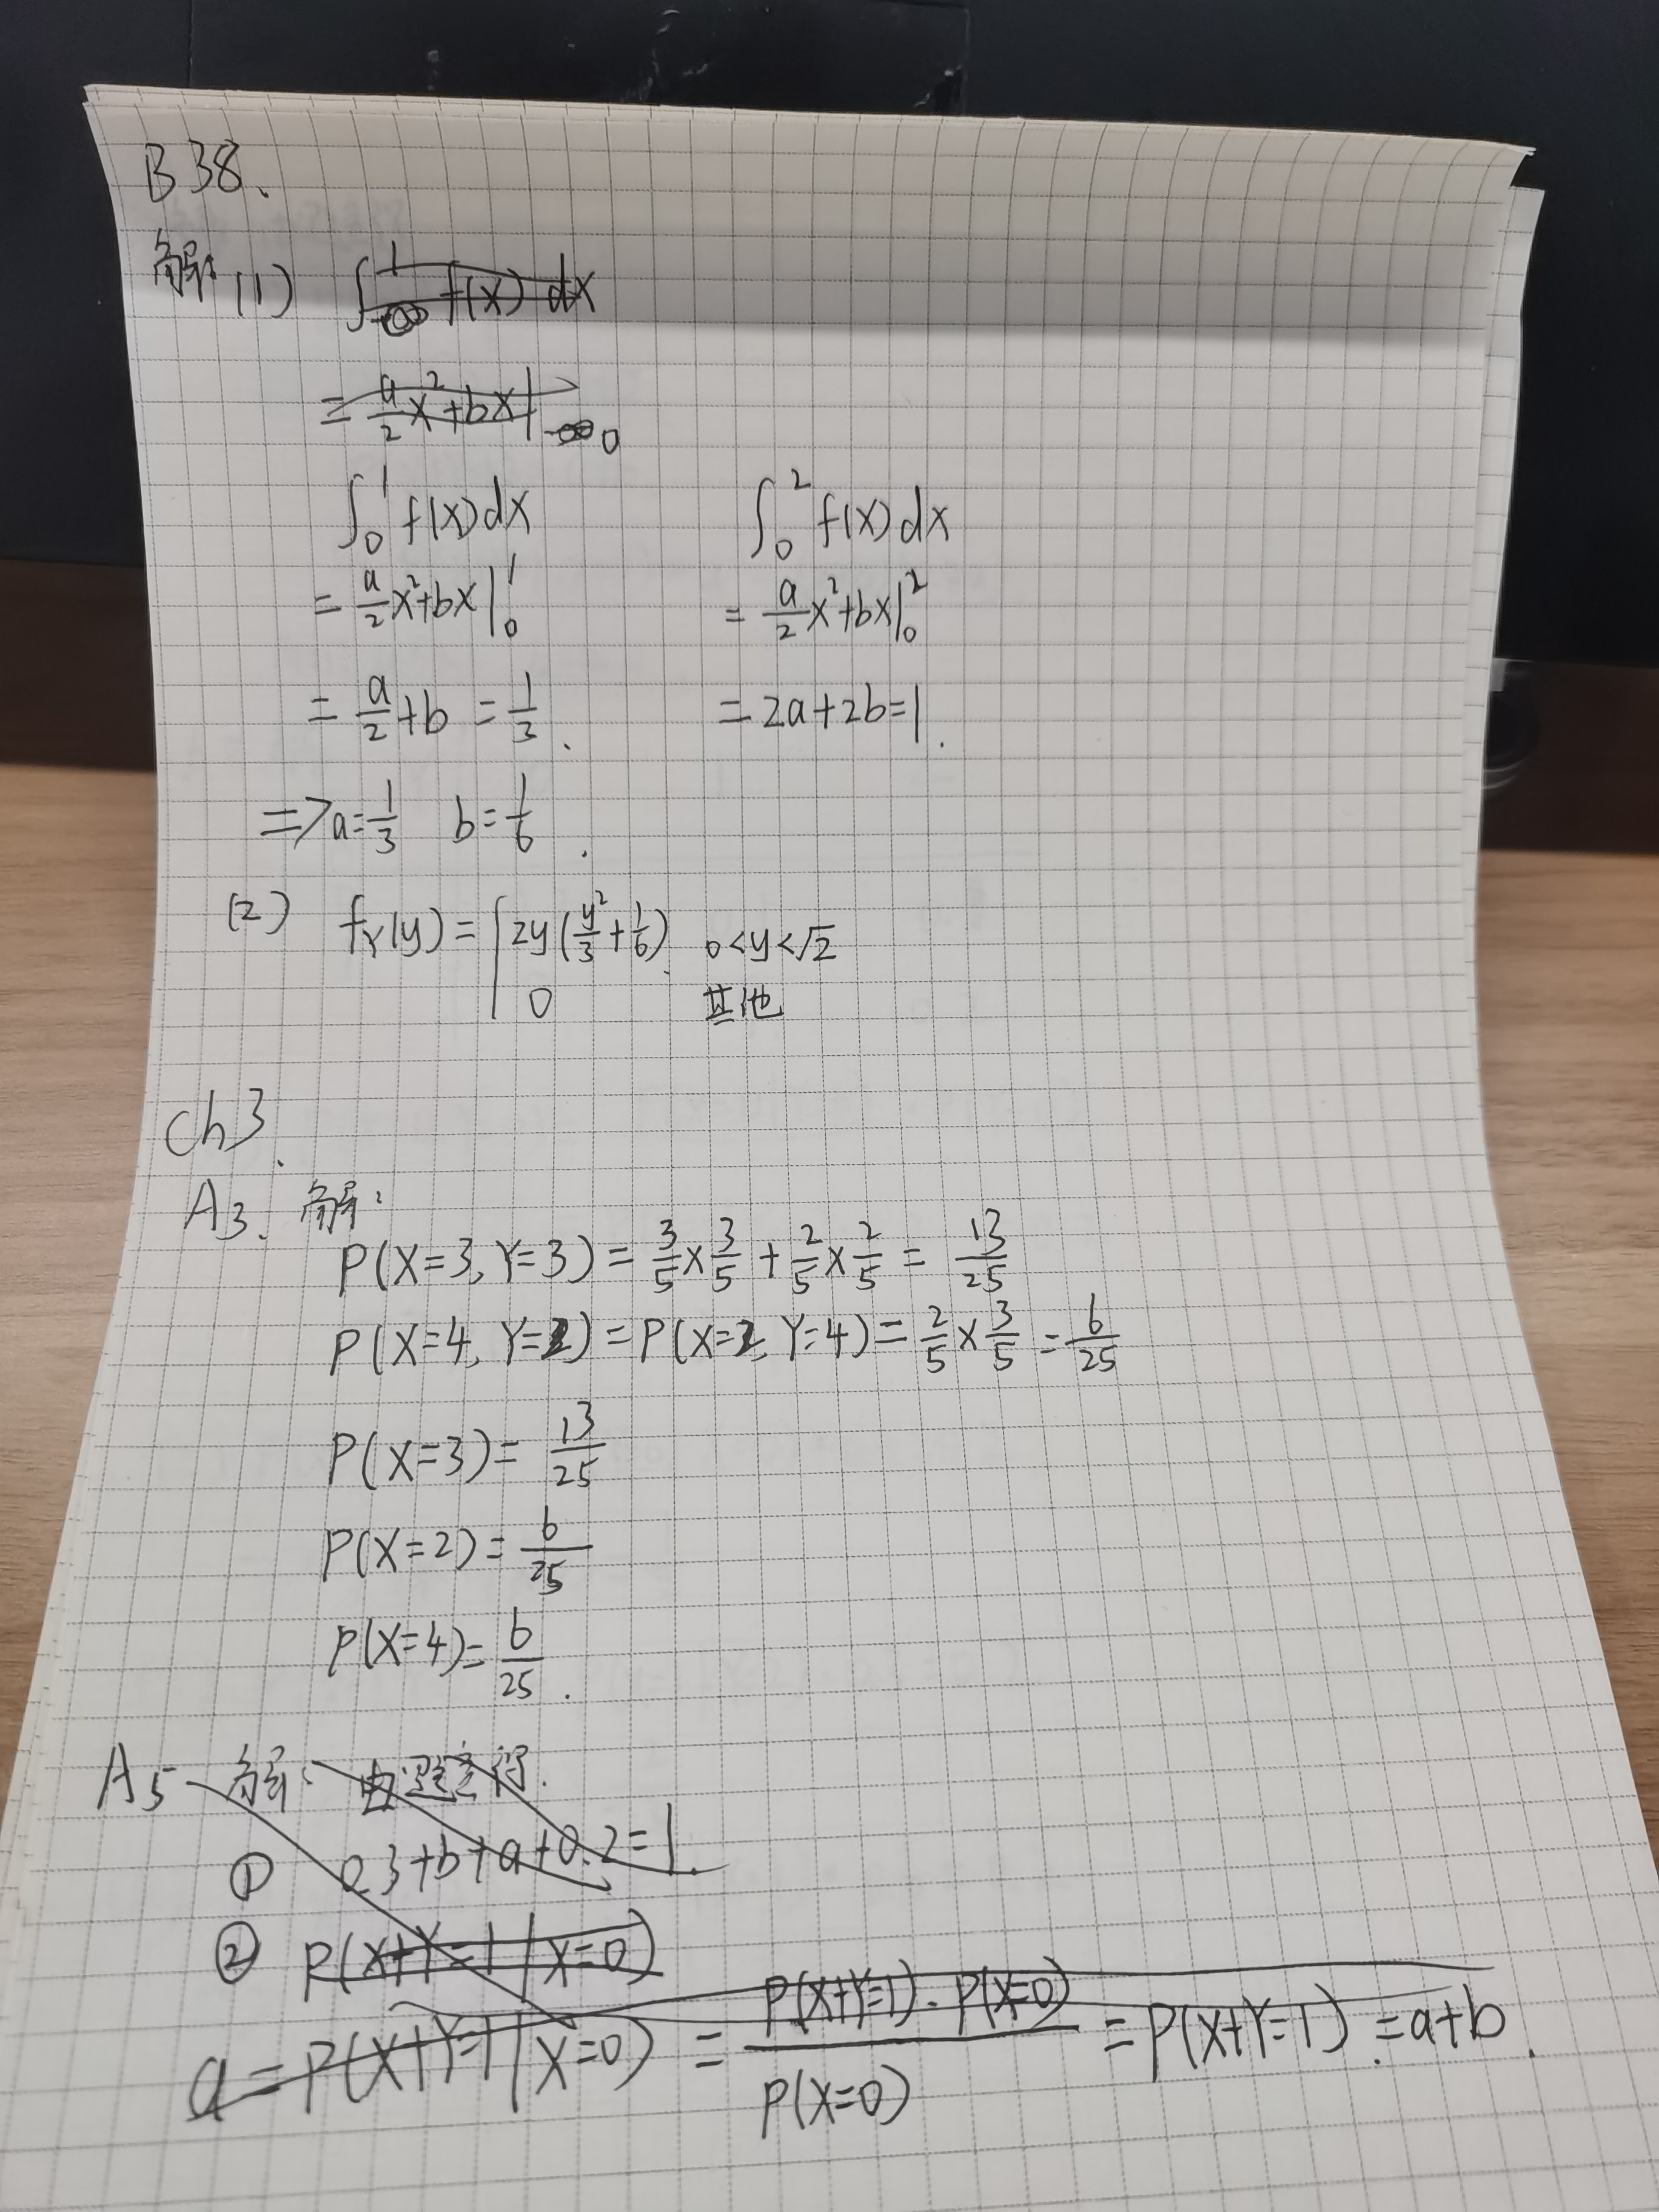 B38、
解: (1) ∫_0^1 f(x) dx
= a/2 x²+bx|_0
∫_0^1 f(x)dx    ∫_0^2 f(x)dx
= a/2 x²+bx|_0^1    = a/2 x²+bx|_0^2
= a/2 +b = 1/3 .    = 2a+2b=1 .
=> a=1/3  b=1/6 .
(2) f_Y(y) = { 2y(y²/3+1/6)  0<y<√2
0  其他
Ch3.
A3. 解:
P(X=3, Y=3) = 3/5×3/5 + 2/5×2/5 = 13/25
P(X=4, Y=2) = P(X=2, Y=4) = 2/5×3/5 = 6/25
P(X=3) = 13/25
P(X=2) = 6/25
P(X=4) = 6/25 .
A5 解: 由题意得.
① 0.3+b+a+0.2=1.
② P(X+Y=1|X=0)
a=P(X+Y=1|X=0) = P(X+Y=1)·P(X=0)/P(X=0) = P(X+Y=1) = a+b.